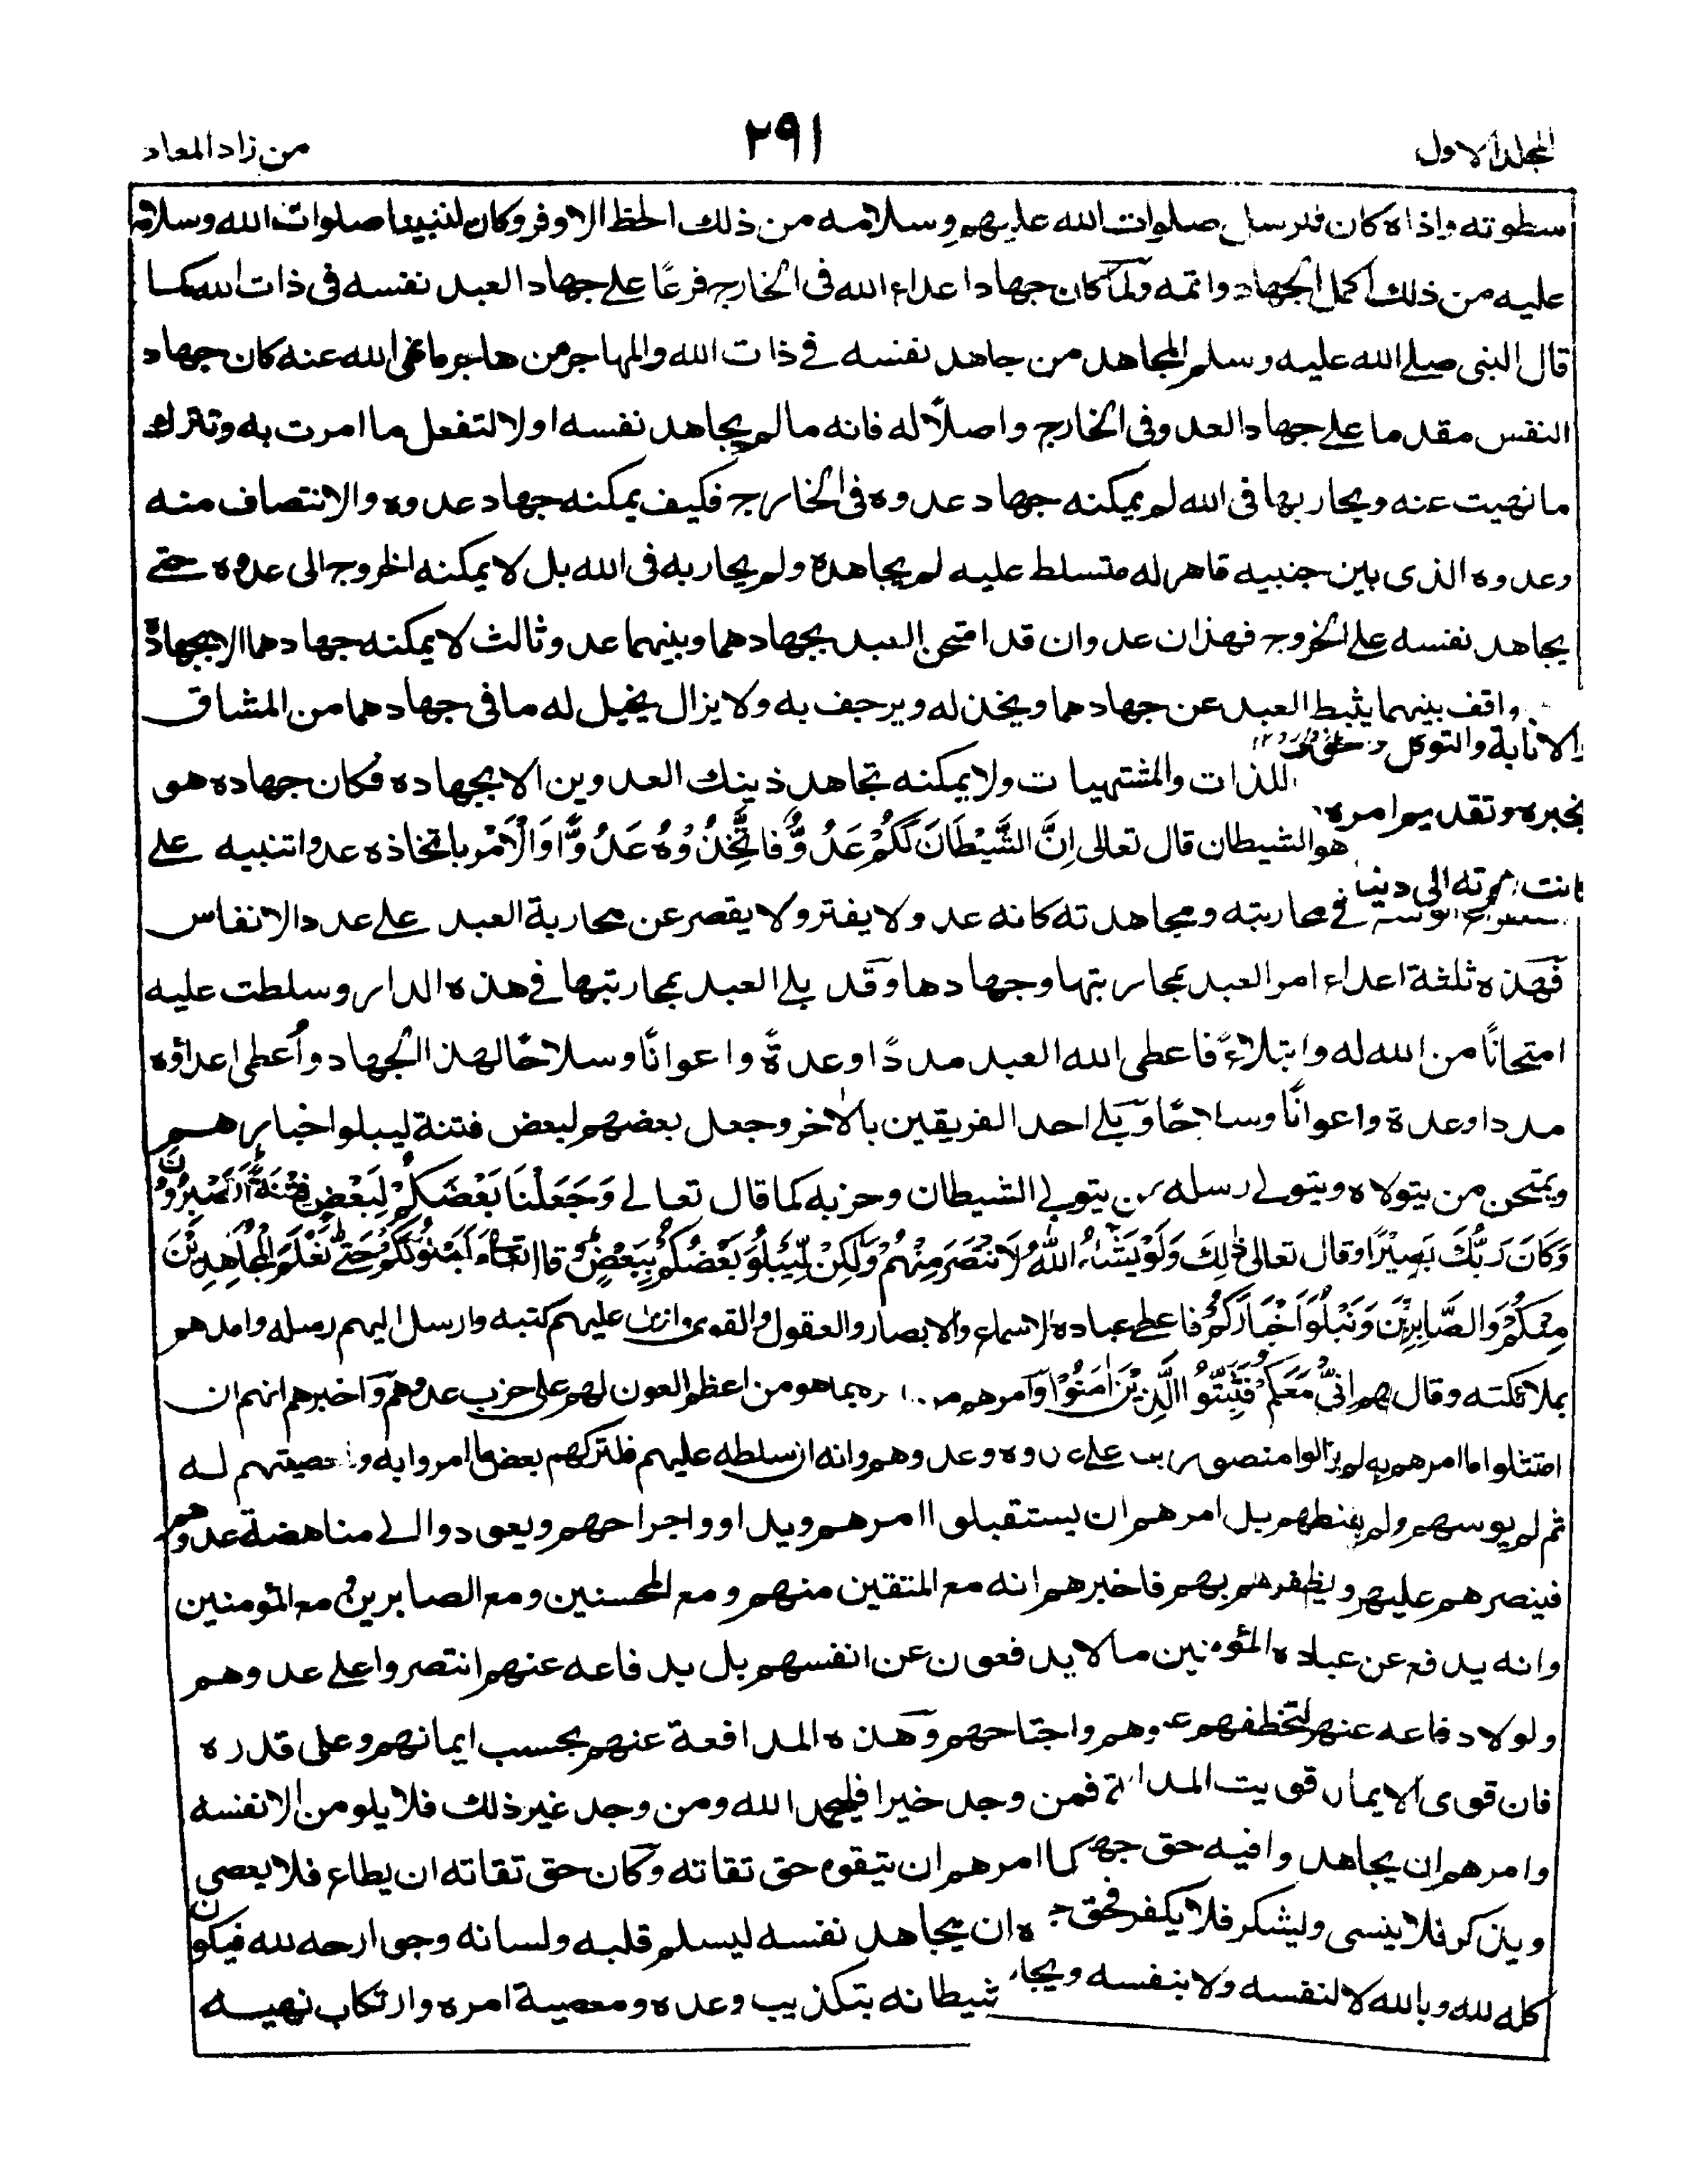 المجلد الاول
٢٩١
من زاد المعاد
سطوته واذاه كان للرسل صلوات الله عليهم وسلامه من ذلك الحظ الاوفر وكان لنبينا صلوات الله وسلامه
عليه من ذلك اكمل الجهاد واتمه ولما كان جهاد اعداء الله فى الخارج فرعًا على جهاد العبد نفسه فى ذات الله كما
قال النبى صلے الله عليه وسلم المجاهد من جاهد نفسه فے ذات الله والمهاجر من هاجر ما نهى الله عنه كان جهاد
النفس مقدما علے جهاد العدو فى الخارج واصلاً له فانه ما لم يجاهد نفسه اولا لتفعل ما امرت به وتترك
ما نهيت عنه ويحاربها فى الله لم يمكنه جهاد عدوه فى الخارج فكيف يمكنه جهاد عدوه والانتصاف منه
وعدوه الذى بين جنبيه قاهر له متسلط عليه لم يجاهده ولم يحاربه فى الله بل لا يمكنه الخروج الى عدوه حتے
يجاهد نفسه على الخروج فهذان عدوان قد امتحن العبد بجهادهما وبينهما عدو ثالث لا يمكنه جهادهما الا بجهاده
واقف بينهما يثبط العبد عن جهادهما ويخذله ويرجف به ولا يزال يخيل له ما فى جهادهما من المشاق
الانابة والتوكل
للذات والمشتهيات ولا يمكنه تجاهد ذينك العدوين الا بجهاده فكان جهاده هو
بخبره وتقديم امره
هو الشيطان قال تعالى اِنَّ الشَّيْطَانَ لَكُمْ عَدُوٌّ فَاتَّخِذُوْهُ عَدُوًّا وَالْاَمْر باتخاذه عدوا تنبيه علے
الى دنيا
فے محاربته ومجاهدته كانه عدو لا يفتر ولا يقصر عن محاربة العبد علے عدد الانفاس
فهذه ثلثة اعداء امر العبد بمحاربتها وجهادها وقد بلے العبد بمحاربتها فے هذه الدار وسلطت عليه
امتحانًا من الله له وابتلاءً فاعطى الله العبد مددًا وعدةً واعوانًا وسلاحًا لهذا الجهاد واُعطى اعداؤه
مددا وعدة واعوانًا وسلاحًا وبلے احد الفريقين بالاخر وجعل بعضهم لبعض فتنة ليبلوا اخبارهم
ويمتحن من يتولاه ويتولے رسله من يتولے الشيطان وحزبه كما قال تعالے وَجَعَلْنَا بَعْضَكُمْ لِبَعْضٍ فِتْنَةً اَتَصْبِرُوْنَ
وَكَانَ رَبُّكَ بَصِيْرًا وقال تعالى ذٰلِكَ وَلَوْ يَشَآءُ اللّٰهُ لَانْتَصَرَ مِنْهُمْ وَلٰكِنْ لِّيَبْلُوَ بَعْضَكُمْ بِبَعْضٍ وقال تعالى وَلَنَبْلُوَنَّكُمْ حَتّٰى نَعْلَمَ الْمُجَاهِدِيْنَ
مِنْكُمْ وَالصَّابِرِيْنَ وَنَبْلُوَا اَخْبَارَكُمْ فاعطى عباده الاسماع والابصار والعقول والقوى وانزل عليهم كتبه وارسل اليهم رسله وامدهم
بملائكته وقال لهم اِنِّيْ مَعَكُمْ فَثَبِّتُوا الَّذِيْنَ اٰمَنُوْا وامرهم بما هو من اعظم العون لهم على حزب عدوهم واخبرهم انهم ان
امتثلوا ما امرهم به لم يزالوا منصورين علے عدوه وعدوهم وانه ان سلطه عليهم فلتركهم بعض ما امروا به ومعصيتهم له
ثم لم يوسهم ولم يقنطهم بل امرهم ان يستقبلوا امرهم ويداووا جراحهم ويعودوا الے مناهضة عدوهم
فينصرهم عليهم ويظفرهم بهم فاخبرهم انه مع المتقين منهم ومع المحسنين ومع الصابرين ومع المؤمنين
وانه يدفع عن عباده المؤمنين ما لا يدفعون عن انفسهم بل بدفاعه عنهم انتصروا علے عدوهم
ولولا دفاعه عنهم لتخطفهم عدوهم واجتاحهم وهذه المدافعة عنهم بحسب ايمانهم وعلى قدره
فان قوى الايمان قويت المدافعة فمن وجد خيرا فليحمد الله ومن وجد غير ذلك فلا يلومن الا نفسه
وامرهم ان يجاهدوا فيه حق جهاده كما امرهم ان يتقوه حق تقاته وكان حق تقاته ان يطاع فلا يعصى
ويذكر فلا ينسى وليشكر فلا يكفر فحق جهاده ان يجاهد نفسه ليسلم قلبه ولسانه وجوارحه لله فيكون
كله لله وبالله لا لنفسه ولا بنفسه ويجاهد شيطانه بتكذيب وعده ومعصية امره وارتكاب نهيه